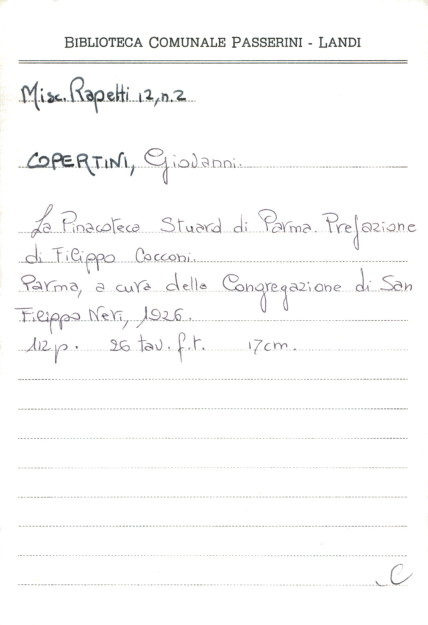 BIBLIOTECA COMUNALE PASSERINI - LANDI
Misc. Rapetti 12, n. 2
COPERTINI, Giovanni.
La Pinacoteca Stuard di Parma. Prefazione
di Filippo Cocconi.
Parma, a cura della Congregazione di San
Filippo Neri, 1926.
112 p. 26 tav. f.t. 17 cm.
C